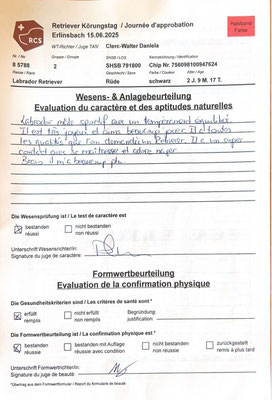 RCS
Retriever Körungstag / Journée d'approbation
Erlinsbach 15.06.2025
Halsband
Farbe
WT-Richter / Juge TAN:
Clerc-Walter Daniela
Nr / No
Gruppe / Groupe
SHSB / LOS
Kennzeichnung / Identification
8 5788
2
SHSB 791800
Chip Nr. 756098100947624
Rasse / Race
Geschlecht / Sexe
Farbe / Couleur
Alter / Age
Labrador Retriever
Rüde
schwarz
2 J. 9 M. 17 T.
Wesens- & Anlagebeurteilung
Evaluation du caractère et des aptitudes naturelles
Labrador mâle sportif avec un tempérament équilibré
Il est très joyeux et aime beaucoup jouer. Il a toutes
les qualités que l'on demande à un Retriever. Il a un super
contact avec sa maîtresse et adore nager
Bravo il m'a beaucoup plu
Die Wesensprüfung ist / Le test de caractère est
bestanden
réussi
nicht bestanden
non réussi
Unterschrift Wesensrichter/in:
Signature du juge de caractère:
Formwertbeurteilung
Evaluation de la confirmation physique
Die Gesundheitskriterien sind / Les critères de santé sont *
erfüllt
remplis
nicht erfüllt
non remplis
Begründung:
justification:
Die Formwertbeurteilung ist / La confirmation physique est *
bestanden
réussie
bestanden mit Auflage
réussie avec condition
nicht bestanden
non réussie
zurückgestellt
remis à plus tard
Unterschrift Formwertrichter/in:
Signature du juge de beauté:
*Übertrag aus dem Formwertformular / Report du formulaire de beauté